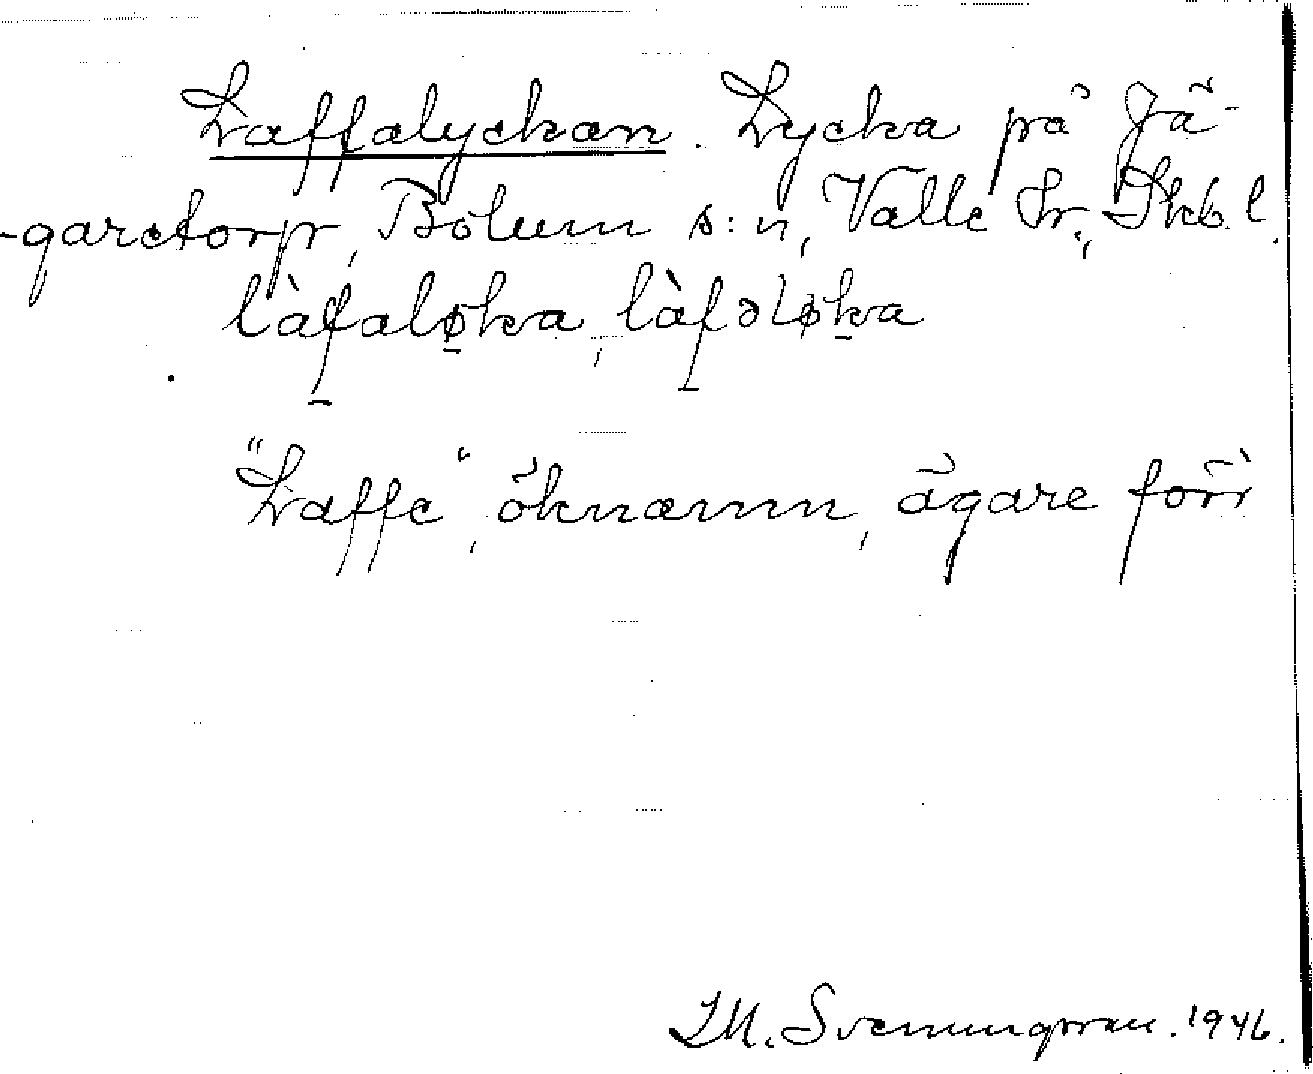 Laffalyckan. Lycka på Jä-
-garetorp, Bolum s:n, Valle hr., Skb. l.
làfaløka, làfəløka
"Laffe", öknamn, ägare förr
M. Svenungsson. 1946.